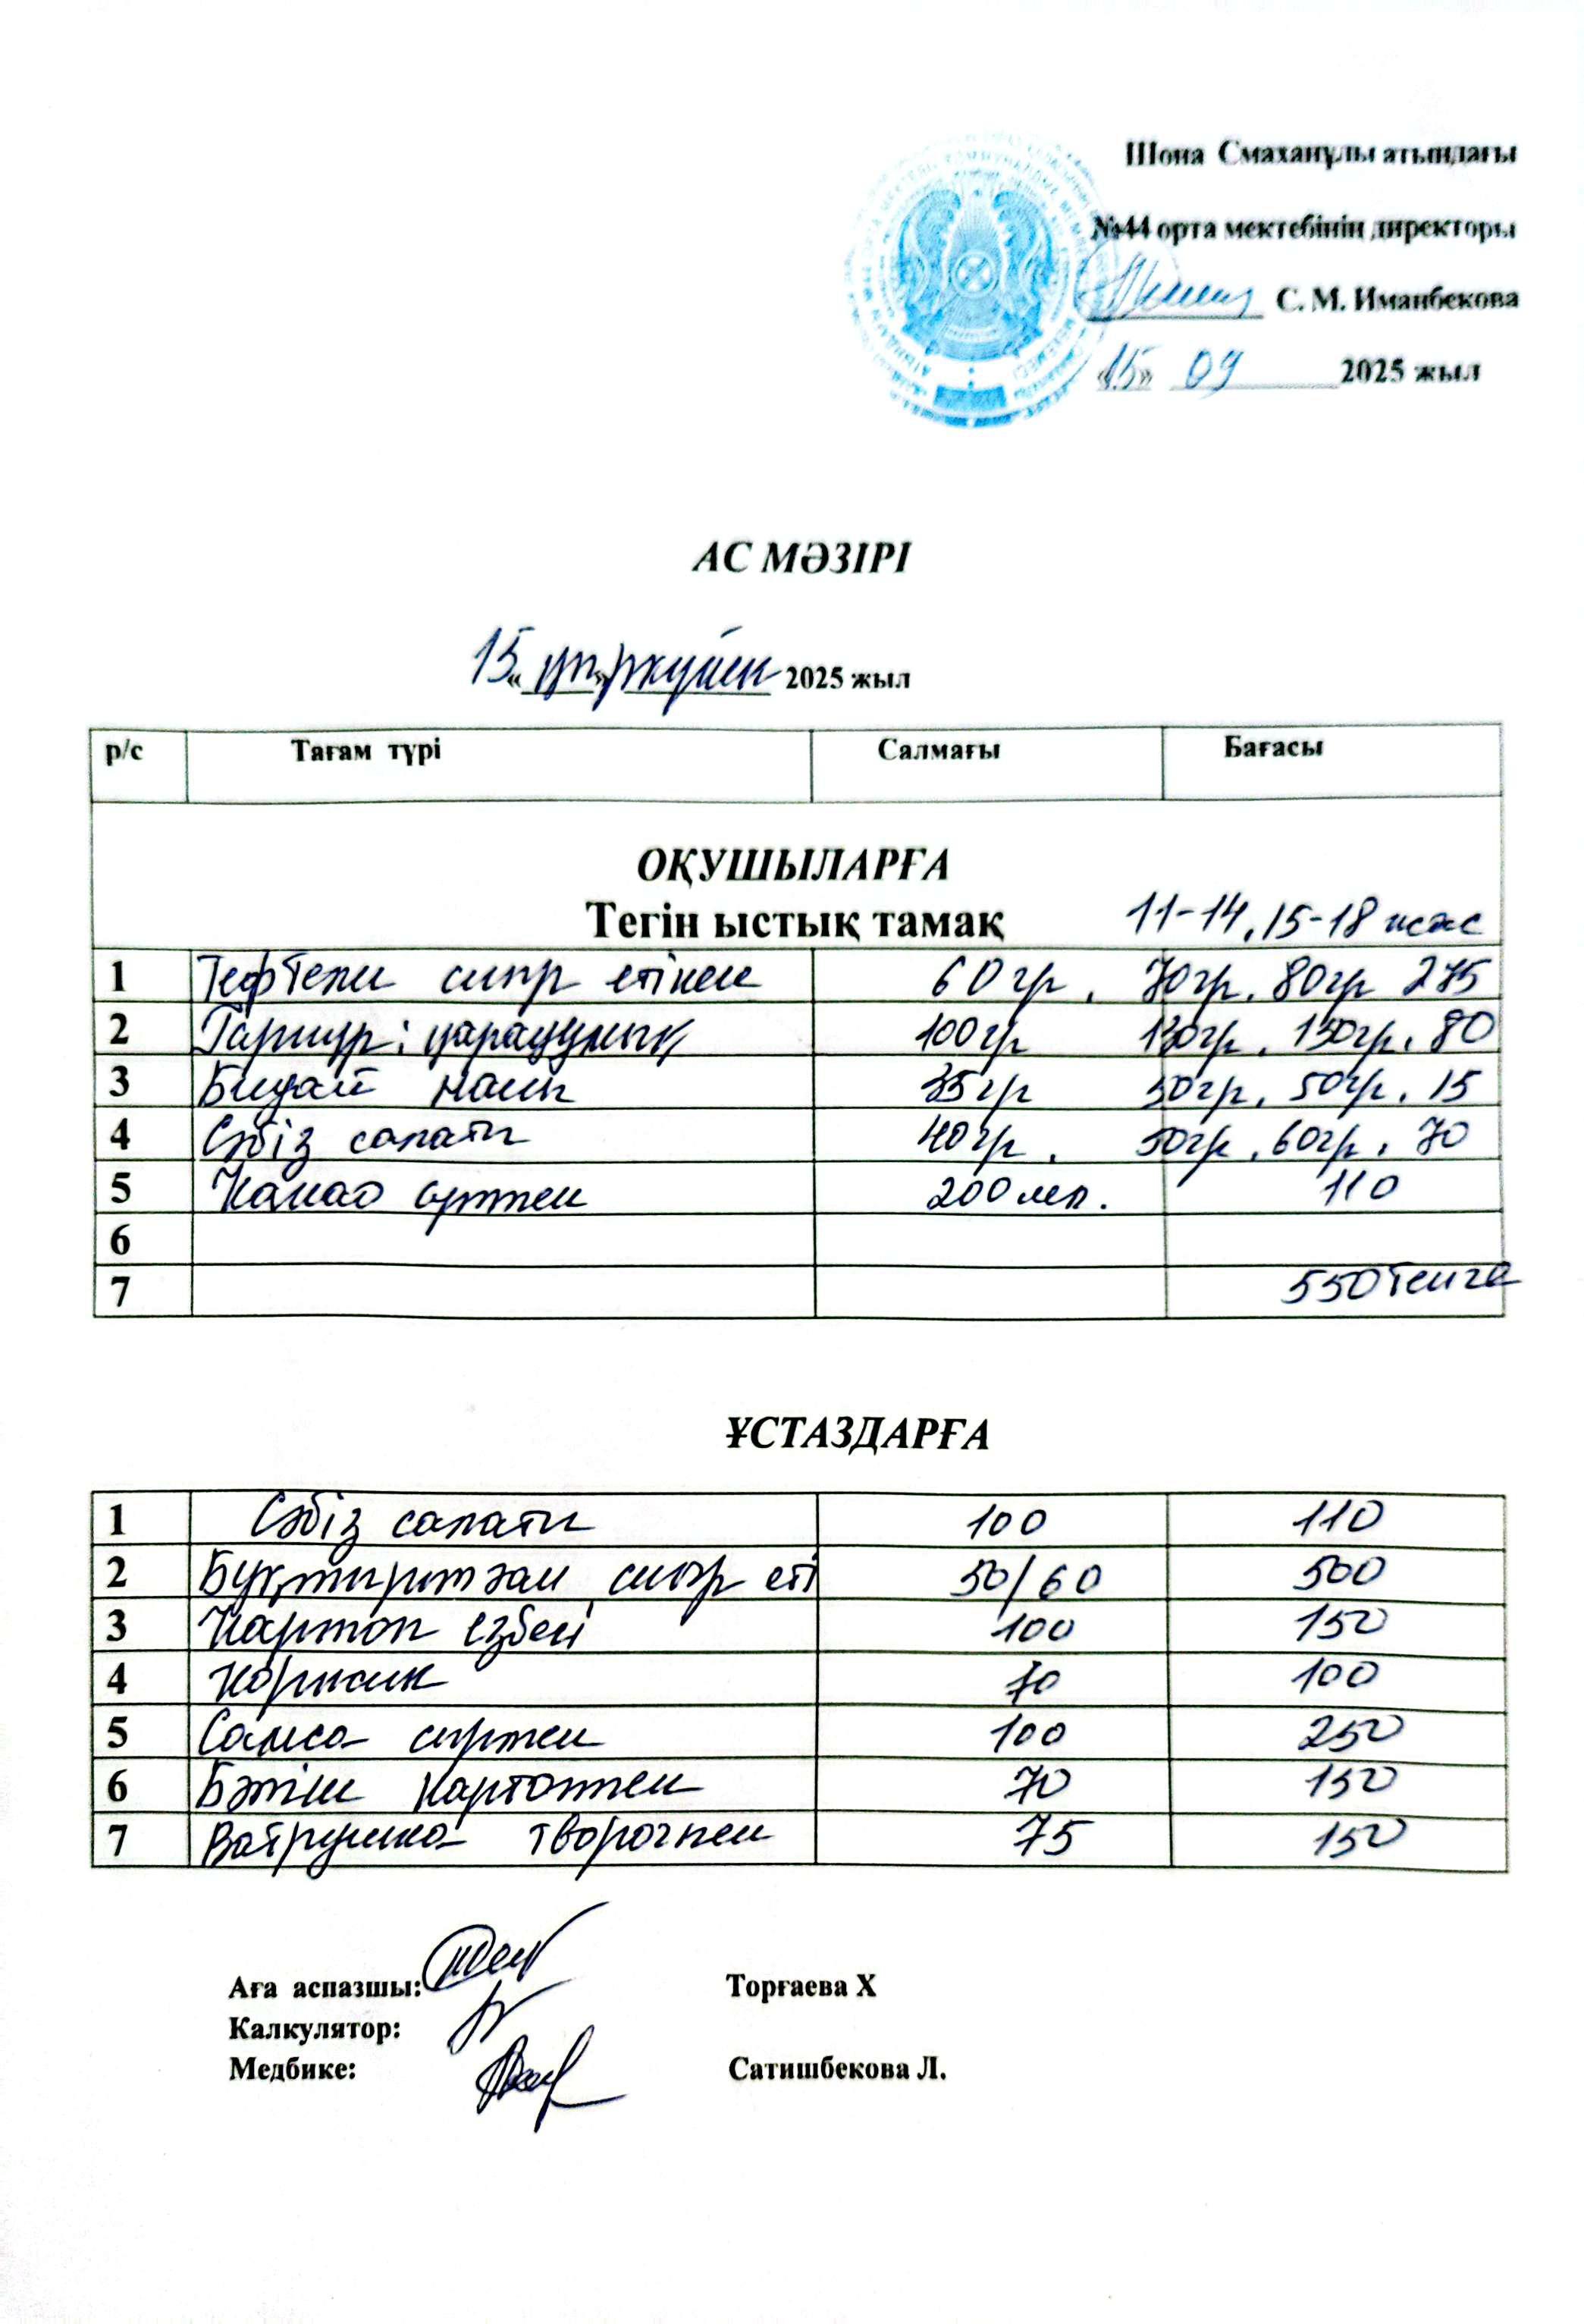 Шона Смаханұлы атындағы
№44 орта мектебінің директоры
С. М. Иманбекова
«15» 09 2025 жыл
АС МӘЗІРІ
15 «қыркүйек» 2025 жыл
р/с Тағам түрі Салмағы Бағасы
ОҚУШЫЛАРҒА
Тегін ыстық тамақ 11-14, 15-18 жас
1 Тефтели сиыр етінен 60гр, 70гр, 80гр 275
2 Гарнир: қарақұмық 100гр 130гр, 150гр, 80
3 Бидай наны 35гр 50гр, 50гр, 15
4 Сәбіз салаты 40гр, 50гр, 60гр, 70
5 Какао сүтпен 200мл. 110
6
7 550 теңге
ҰСТАЗДАРҒА
1 Сәбіз салаты 100 110
2 Бұқтырылған сиыр еті 50/60 500
3 Картоп езбесі 100 150
4 Коржик 70 100
5 Самса сырмен 100 250
6 Бәтіш картоппен 70 150
7 Ватрушка творогпен 75 150
Аға аспазшы: Торғаева Х
Калкулятор:
Медбике: Сатишбекова Л.